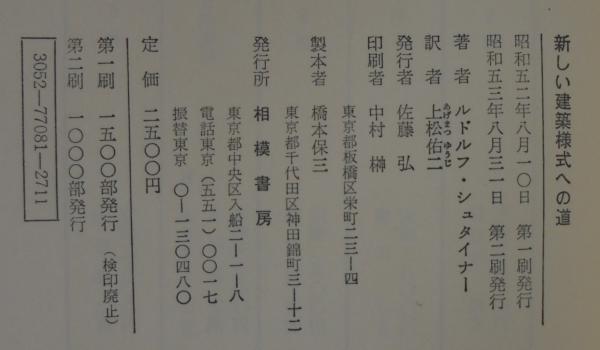 新しい建築様式への道
昭和五二年八月一〇日 第一刷発行
昭和五三年八月三一日 第二刷発行
著者 ルドルフ・シュタイナー
訳者 上松佑二
あげまつ ゆうじ
発行者 佐藤弘
印刷者 中村榊
東京都板橋区栄町二三―四
製本者 橋本保三
東京都千代田区神田錦町三―十二
発行所 相模書房
東京都中央区入船二―一―八
電話東京(五五一)〇〇一七
振替東京 〇―一三〇四八〇
定価 二五〇〇円
第一刷 一五〇〇部発行 (検印廃止)
第二刷 一〇〇〇部発行
3052―77081―2711